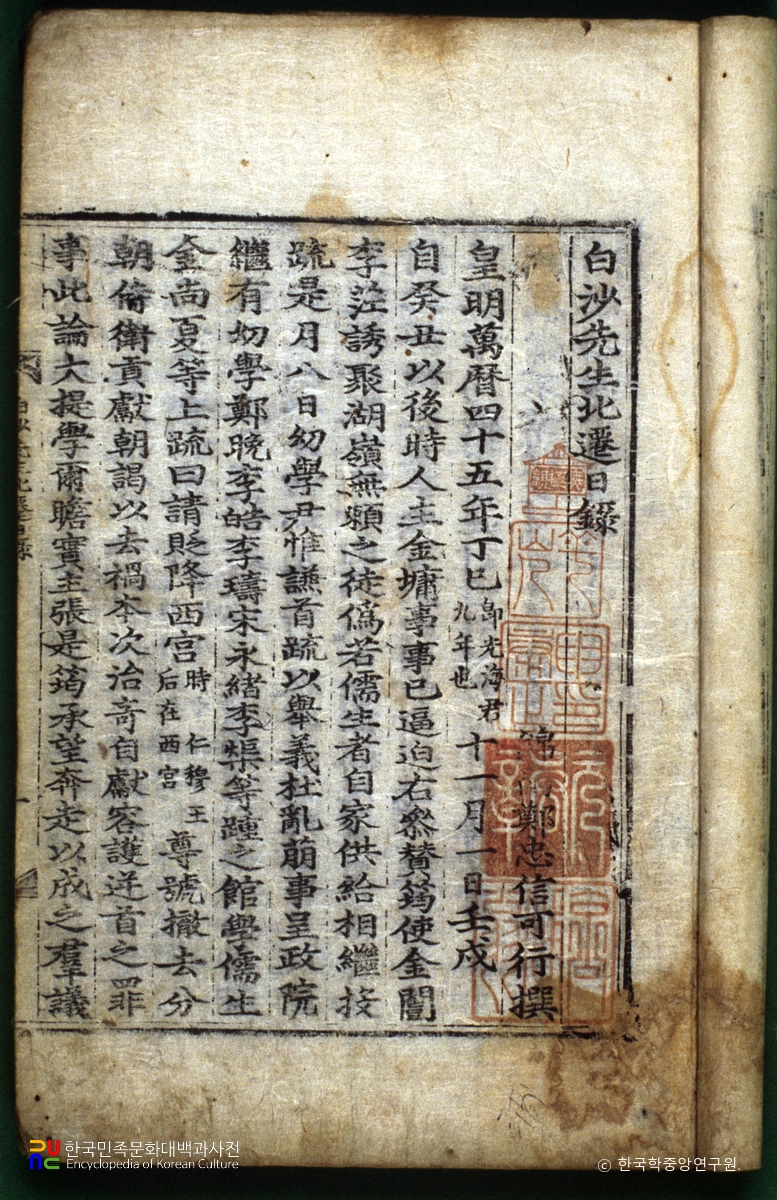 白沙先生北遷日錄
錦 鄭忠信可行撰
皇明萬曆四十五年丁巳卽光海君九年也十一月一日壬戌
自癸丑以後時人主金墉事事已逼迫右叅賛筠使金闓
李茳誘聚湖嶺無賴之徒僞若儒生者自家供給相繼投
疏是月八日幼學尹惟謙首疏以舉義杜亂萠事呈政院
繼有幼學鄭晚李皓李璹宋永緖李榘等踵之館學儒生
金尙夏等上疏曰請貶降西宮時 仁穆王后在西宮 尊號撤去分
朝侍衛貢獻朝謁以去禍本次治奇自獻容護逆首之罪
事此論大提學爾瞻實主張是筠承望奔走以成之羣議
白沙先生北遷日錄
한국민족문화대백과사전
Encyclopedia of Korean Culture
© 한국학중앙연구원